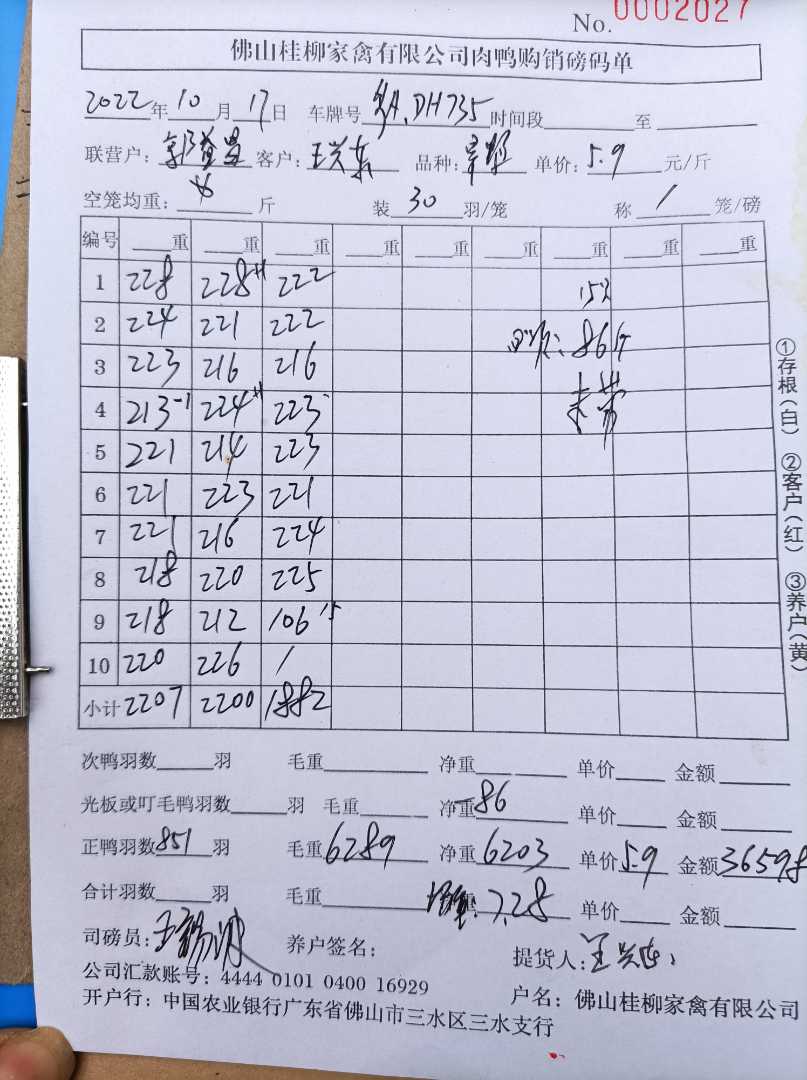 No. 0002027
佛山桂柳家禽有限公司肉鸭购销磅码单
2022年10月17日 车牌号 粤A.DH735 时间段 至
联营户: 客户: 王兴东 品种: 单价: 5.9 元/斤
空笼均重: 斤 装 30 羽/笼 称 1 笼/磅
编号 重 重 重 重 重 重 重 重 重
1 228 228+1 222
2 224 221 222
3 223 216 216
4 213-1 224+1 223
5 221 214 223
6 221 223 221
7 221 216 224
8 218 220 225
9 218 212 106 15
10 220 226 /
小计 2207 2200 1882
86斤
次鸭羽数 羽 毛重 净重 单价 金额
光板或叮毛鸭羽数 羽 毛重 净重 -86 单价 金额
正鸭羽数 851 羽 毛重 6289 净重 6203 单价 5.9 金额 36598
合计羽数 羽 毛重 重 7.28 单价 金额
司磅员: 养户签名: 提货人: 王兴东
公司汇款账号: 4444 0101 0400 16929 户名: 佛山桂柳家禽有限公司
开户行: 中国农业银行广东省佛山市三水区三水支行
①存根(白) ②客户(红) ③养户(黄)